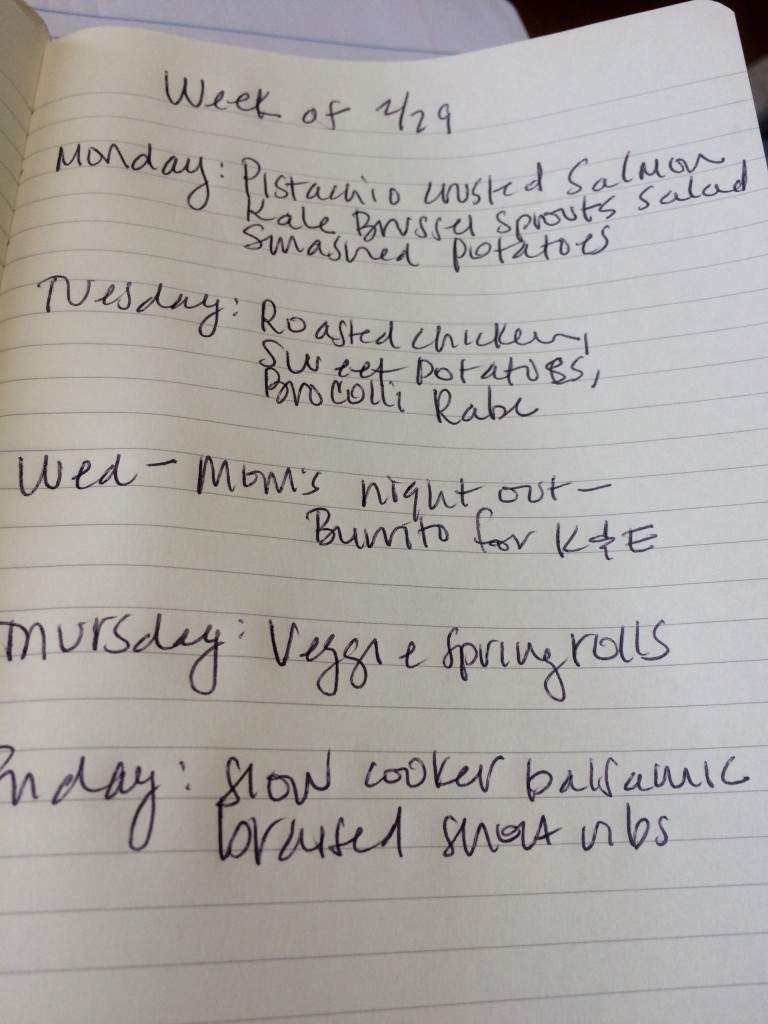 Week of 2/29
Monday: Pistachio crusted Salmon
Kale Brussel Sprouts Salad
Smashed potatoes
Tuesday: Roasted chicken,
Sweet potatoes,
Brocolli Rabe
Wed - Mom's night out -
Burrito for K & E
Thursday: Veggie spring rolls
Friday: Slow cooker balsamic
braised short ribs